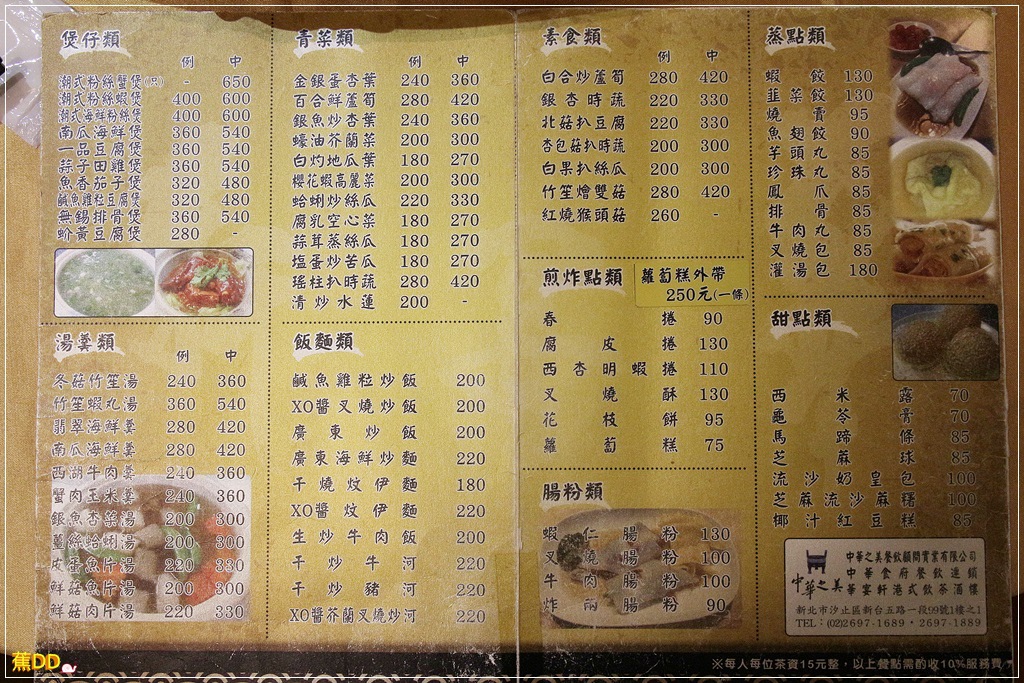 煲仔類
例 中
潮式粉絲蟹煲(只) - 650
潮式粉絲蝦煲 400 600
潮式海鮮粉絲煲 400 600
南瓜海鮮煲 360 540
一品豆腐煲 360 540
蒜子田雞煲 360 540
魚香茄子煲 320 480
鹹魚雞粒豆腐煲 320 480
無錫排骨煲 360 540
蚧黃豆腐煲 280 -
湯羹類
例 中
冬菇竹笙湯 240 360
竹笙蝦丸湯 360 540
翡翠海鮮羹 280 420
南瓜海鮮羹 280 420
西湖牛肉羹 240 360
蟹肉玉米羹 240 360
銀魚杏菜湯 200 300
薑絲蛤蜊湯 200 300
皮蛋魚片湯 220 330
鮮菇魚片湯 200 300
鮮菇肉片湯 220 330
青菜類
例 中
金銀蛋杏葉 240 360
百合鮮蘆筍 280 420
銀魚炒杏葉 240 360
蠔油芥蘭菜 200 300
白灼地瓜葉 180 270
櫻花蝦高麗菜 200 300
蛤蜊炒絲瓜 220 330
腐乳空心菜 180 270
蒜茸蒸絲瓜 180 270
塩蛋炒苦瓜 180 270
瑤柱扒時蔬 280 420
清炒水蓮 200 -
飯麵類
鹹魚雞粒炒飯 200
XO醬叉燒炒飯 200
廣東炒飯 200
廣東海鮮炒麵 220
干燒炆伊麵 180
XO醬炆伊麵 220
生炒牛肉飯 200
干炒牛河 220
干炒豬河 220
XO醬芥蘭叉燒炒河 220
素食類
例 中
白合炒蘆筍 280 420
銀杏時蔬 220 330
北菇扒豆腐 220 330
杏包菇扒時蔬 200 300
白果扒絲瓜 200 300
竹笙燴雙菇 280 420
紅燒猴頭菇 260 -
煎炸點類
蘿蔔糕外帶
250元(一條)
春捲 90
腐皮捲 130
西杏明蝦捲 110
叉燒酥 130
花枝餅 95
蘿蔔糕 75
腸粉類
蝦仁腸粉 130
叉燒腸粉 100
牛肉腸粉 100
炸兩腸粉 90
蒸點類
蝦餃 130
韮菜餃 130
燒賣 95
魚翅餃 90
芋頭丸 85
珍珠丸 85
鳳爪 85
排骨 85
牛肉丸 85
叉燒包 85
灌湯包 180
甜點類
西米露 70
龜苓膏 70
馬蹄條 85
芝蔴球 85
流沙奶皇包 100
芝蔴流沙蔴糬 100
椰汁紅豆糕 85
中華之美
中華之美餐飲顧問實業有限公司
中華食府餐飲連鎖
華宴軒港式飲茶酒樓
新北市汐止區新台五路一段99號1樓之1
TEL：(02)2697-1689・2697-1889
※每人每位茶資15元整，以上餐點需酌收10%服務費
蕉DD